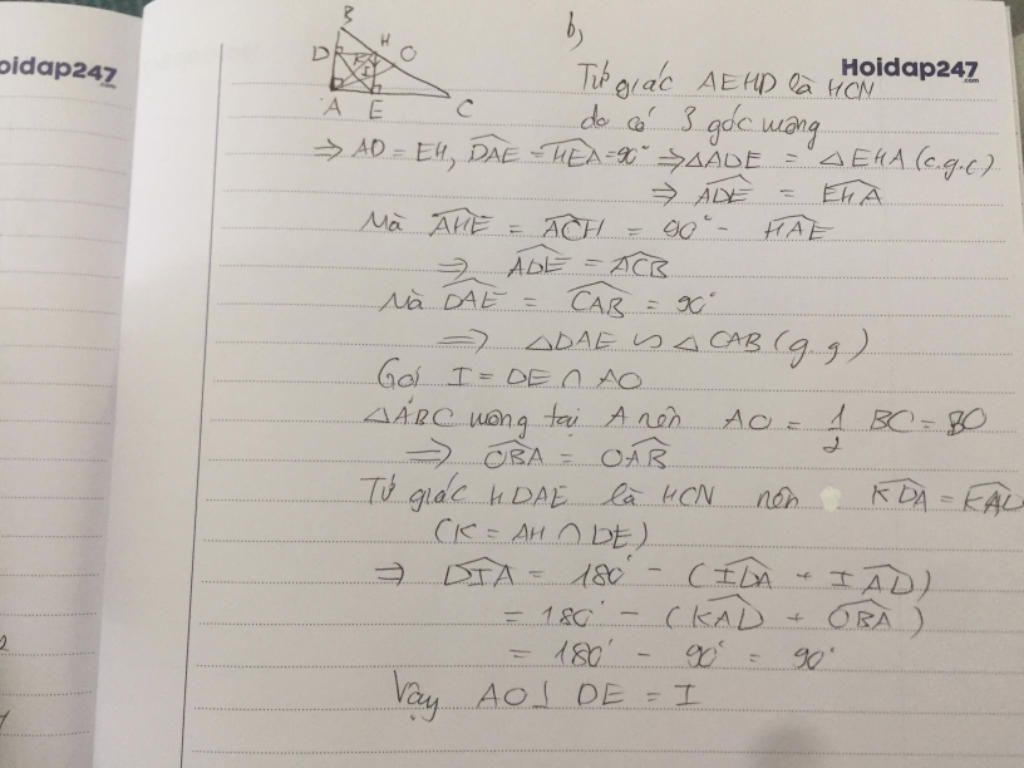 oidap247
.com
B
H
D
O
K
I
A
E
C
b,
Hoidap247
.com
Tứ giác AEHD là HCN
do có 3 góc vuông
⇒ AD = EH, \widehat{DAE} = \widehat{HEA} = 90° ⇒ △ADE = △EHA (c.g.c)
⇒ \widehat{ADE} = \widehat{EHA}
Mà \widehat{AHE} = \widehat{ACH} = 90° - \widehat{HAE}
⇒ \widehat{ADE} = \widehat{ACB}
Mà \widehat{DAE} = \widehat{CAB} = 90°
⇒ △DAE ∽ △CAB (g.g)
Gọi I = DE ∩ AO
△ABC vuông tại A nên AO = 1/2 BC = BO
⇒ \widehat{OBA} = \widehat{OAB}
Tứ giác HDAE là HCN nên \widehat{KDA} = \widehat{KAD}
(K = AH ∩ DE)
⇒ \widehat{DIA} = 180° - (\widehat{IDA} + \widehat{IAD})
= 180° - (\widehat{KAD} + \widehat{OBA})
= 180° - 90° = 90°
Vậy AO ⊥ DE = I